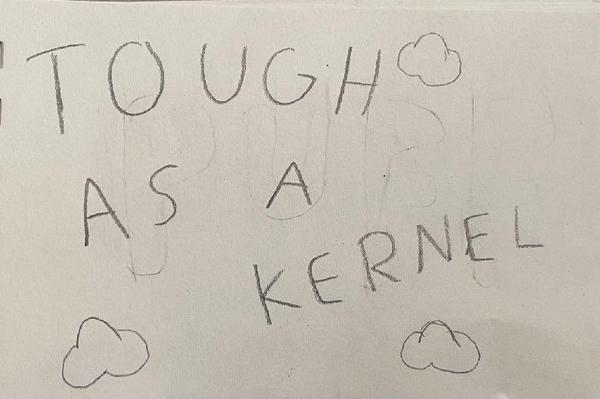 TOUGH
AS A
KERNEL